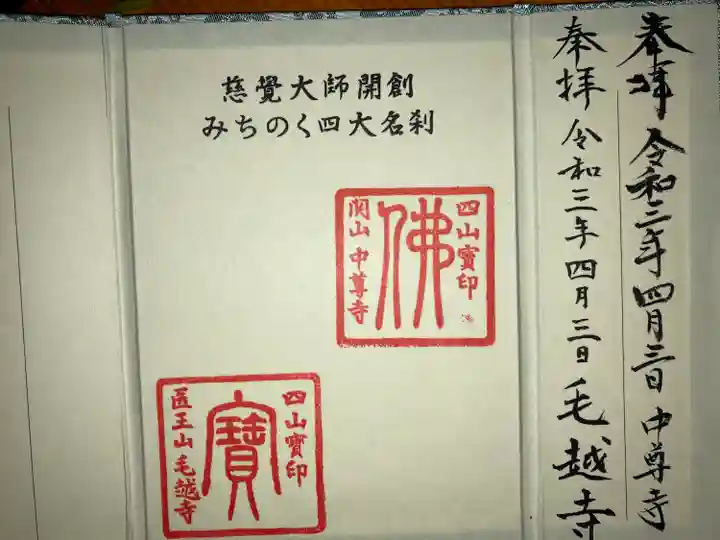 奉拝 令和三年四月三日 中尊寺
奉拝 令和三年四月三日 毛越寺
慈覺大師開創
みちのく四大名刹
四山寶印
佛
関山 中尊寺
四山寶印
寶
医王山 毛越寺